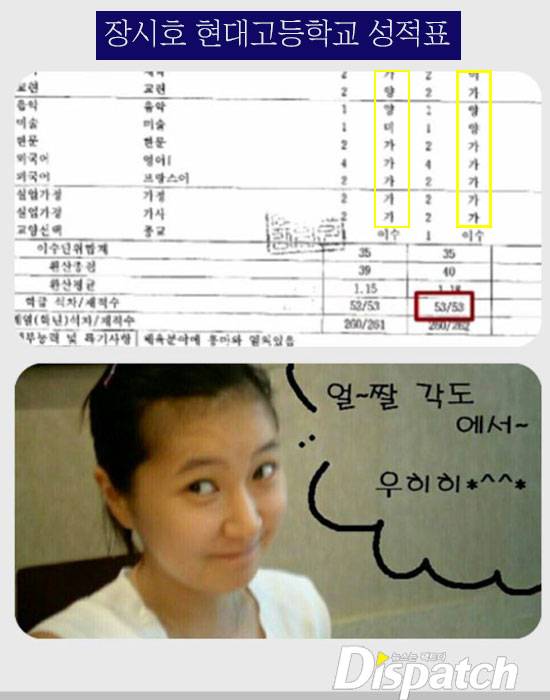 장시호 현대고등학교 성적표
2 가 2
교련 교련 2 양 2 가
음악 음악 1 양 1 양
미술 미술 1 미 1 양
한문 한문 2 가 2 가
외국어 영어I 4 가 4 가
외국어 프랑스어 2 가 2 가
실업가정 가정 2 가 2 가
실업가정 가사 2 가 2 가
교양선택 종교 1 이수 1 이수
이수단위합계 35 35
환산총점 39 40
환산평균 1.15 1.18
학급 석차/재적수 52/53 53/53
계열(학년)석차/재적수 260/261 260/262
특기사항 체육분야에 흥미와 열의있음
얼~짤 각도
에서~
우히히*^^*
뉴스는 팩트다
Dispatch